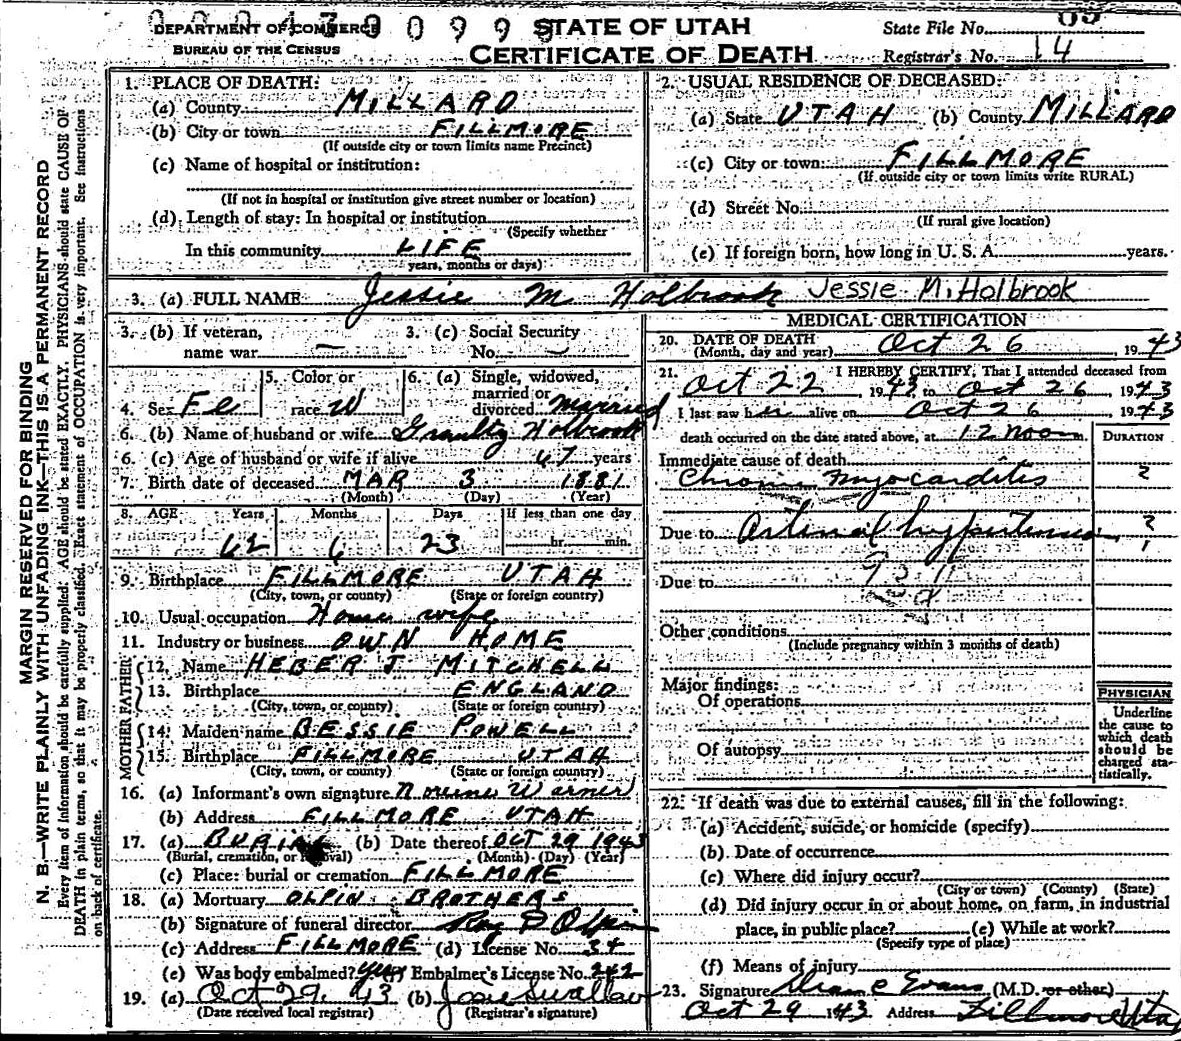 0 0 0 4 3 0 0 9 9 9
DEPARTMENT OF COMMERCE
BUREAU OF THE CENSUS
STATE OF UTAH
CERTIFICATE OF DEATH
State File No. 85
Registrar's No. 14
MARGIN RESERVED FOR BINDING
N. B.—WRITE PLAINLY WITH UNFADING INK—THIS IS A PERMANENT RECORD
Every item of information should be carefully supplied. AGE should be stated EXACTLY. PHYSICIANS should state CAUSE OF
DEATH in plain terms, so that it may be properly classified. Exact statement of OCCUPATION is very important. See instructions
on back of certificate.
1. PLACE OF DEATH:
(a) County MILLARD
(b) City or town FILLMORE
(If outside city or town limits name Precinct)
(c) Name of hospital or institution:
(If not in hospital or institution give street number or location)
(d) Length of stay: In hospital or institution
(Specify whether
In this community LIFE
years, months or days)
2. USUAL RESIDENCE OF DECEASED:
(a) State UTAH (b) County MILLARD
(c) City or town FILLMORE
(If outside city or town limits write RURAL)
(d) Street No.
(If rural give location)
(e) If foreign born, how long in U. S. A. years.
3. (a) FULL NAME Jessie M Holbrook Jessie M. Holbrook
3. (b) If veteran,
name war —
3. (c) Social Security
No. —
4. Sex Fe
5. Color or
race W
6. (a) Single, widowed,
married or
divorced married
6. (b) Name of husband or wife Holbrook
6. (c) Age of husband or wife if alive 67 years
7. Birth date of deceased MAR 3 1881
(Month) (Day) (Year)
8. AGE Years Months Days If less than one day
62 6 23 hr. min.
9. Birthplace FILLMORE UTAH
(City, town, or county) (State or foreign country)
10. Usual occupation House wife
11. Industry or business OWN HOME
FATHER
12. Name HEBER J MITCHELL
13. Birthplace ENGLAND
(City, town, or county) (State or foreign country)
MOTHER
14. Maiden name BESSIE POWELL
15. Birthplace FILLMORE UTAH
(City, town, or county) (State or foreign country)
16. (a) Informant's own signature Norine Warner
(b) Address FILLMORE UTAH
17. (a) BURIAL (b) Date thereof OCT 29 1943
(Burial, cremation, or removal) (Month) (Day) (Year)
(c) Place: burial or cremation FILLMORE
18. (a) Mortuary OLPIN BROTHERS
(b) Signature of funeral director Olpin
(c) Address FILLMORE (d) License No. 34
(e) Was body embalmed? yes (f) Embalmer's License No. 242
19. (a) Oct 29, 43 (b) Josie Swallow
(Date received local registrar) (Registrar's signature)
MEDICAL CERTIFICATION
20. DATE OF DEATH
(Month, day and year) Oct 26, 1943
21. I HEREBY CERTIFY, That I attended deceased from
Oct 22, 1943, to Oct 26, 1943
I last saw her alive on Oct 26 1943
death occurred on the date stated above, at 12 noon m.
DURATION
Immediate cause of death
Chronic myocarditis 2
Due to Arterial hypertension
Due to
Other conditions
(Include pregnancy within 3 months of death)
Major findings:
Of operations
Of autopsy
PHYSICIAN
Underline
the cause to
which death
should be
charged sta-
tistically.
22. If death was due to external causes, fill in the following:
(a) Accident, suicide, or homicide (specify)
(b) Date of occurrence
(c) Where did injury occur?
(City or town) (County) (State)
(d) Did injury occur in or about home, on farm, in industrial
place, in public place? (e) While at work?
(Specify type of place)
(f) Means of injury
23. Signature Evans (M.D. or other)
Oct 29 1943 Address Fillmore Utah